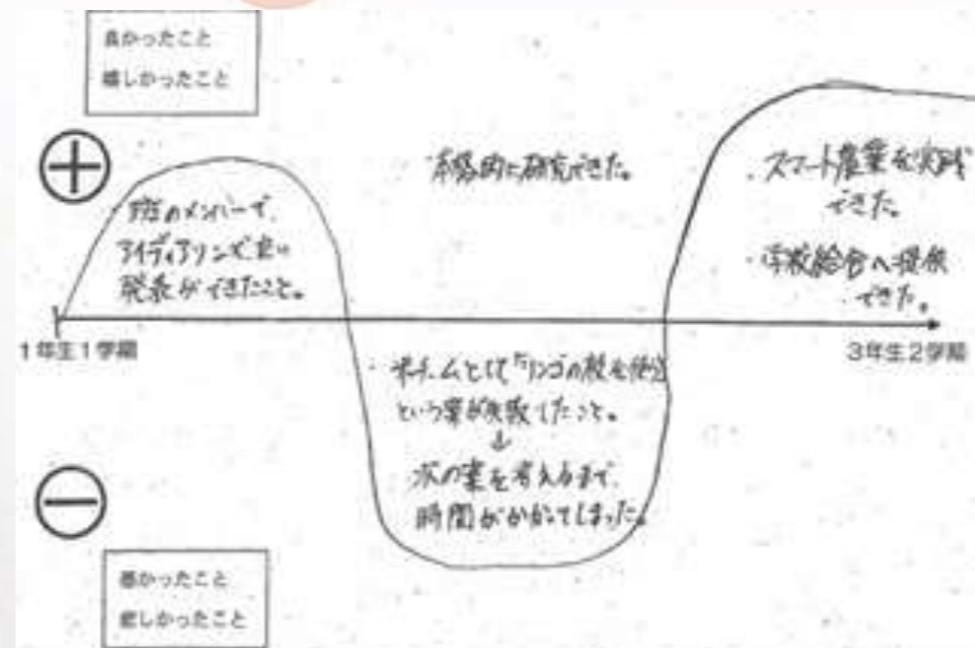 良かったこと
嬉しかったこと
・班のメンバーで、
アイディアソンで良い
発表ができたこと。
・本格的に研究できた。
・スマート農業を実践
できた。
・学校給食へ提供
できた。
1年生1学期
3年生2学期
チームとして「リンゴの
という案が失敗したこと。
↓
次の案を考えるまで、
時間がかかってしまった。
悪かったこと
悲しかったこと